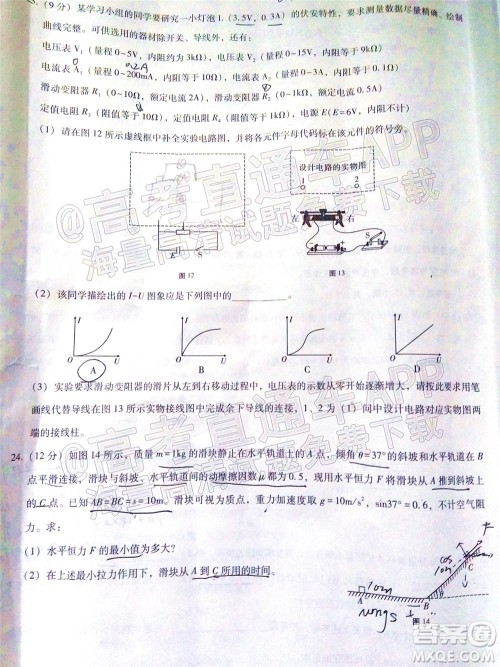 （9 分）某学习小组的同学要研究一小灯泡 L（3.5V, 0.3A）的伏安特性，要求测量数据尽量精确、绘制
曲线完整。可供选用的器材除开关、导线外，还有：
电压表 V₁（量程 0~5V，内阻约为 3kΩ） 电压表 V₂（量程 0~15V，内阻约为 9kΩ）
0.2A
电流表 A₁（量程 0~200mA，内阻等于 10Ω） 电流表 A₂（量程 0~3A，内阻等于 0.1Ω）
滑动变阻器 R₁（0~10Ω，额定电流 2A） 滑动变阻器 R₂（0~1kΩ，额定电流 0.5A）
定值电阻 R₃（阻值等于 10Ω） 定值电阻 R₄（阻值等于 1kΩ） 电源（E=6V，内阻不计）
（1）请在图 12 所示虚线框中补全实验电路图，并将各元件字母代码标在该元件的符号旁。
设计电路的实物图
1 2
左 右
E S
S
图 12
图 13
（2）该同学描绘出的 I-U 图象应是下列图中的
I I I I
O U O U O U O U
A B C D
（3）实验要求滑动变阻器的滑片从左到右移动过程中，电压表的示数从零开始逐渐增大，请按此要求用笔
画线代替导线在图 13 所示实物接线图中完成余下导线的连接，1、2（1）间中设计电路对应实物图两
端的接线柱。
24.（12 分）如图 14 所示，质量 m=1kg 的滑块静止在水平轨道上的 A 点，倾角 θ=37° 的斜坡和水平轨道在
B 点平滑连接，滑块与斜坡、水平轨道间的动摩擦因数 μ 都为 0.5，现用水平恒力 F 将滑块从 A 推到斜坡上
的 C 点。已知 AB=BC=s=10m。滑块可视为质点，重力加速度取 g=10m/s²，sin37°=0.6，不计空气阻
力。求：
（1）水平恒力 F 的最小值为多大？
（2）在上述最小拉力作用下，滑块从 A 到 C 所用的时间。
F
10m
10m
C
A
B
θ
图 14
高考直通车APP
海量高清试题免费下载
答案圈
MXQE.COM